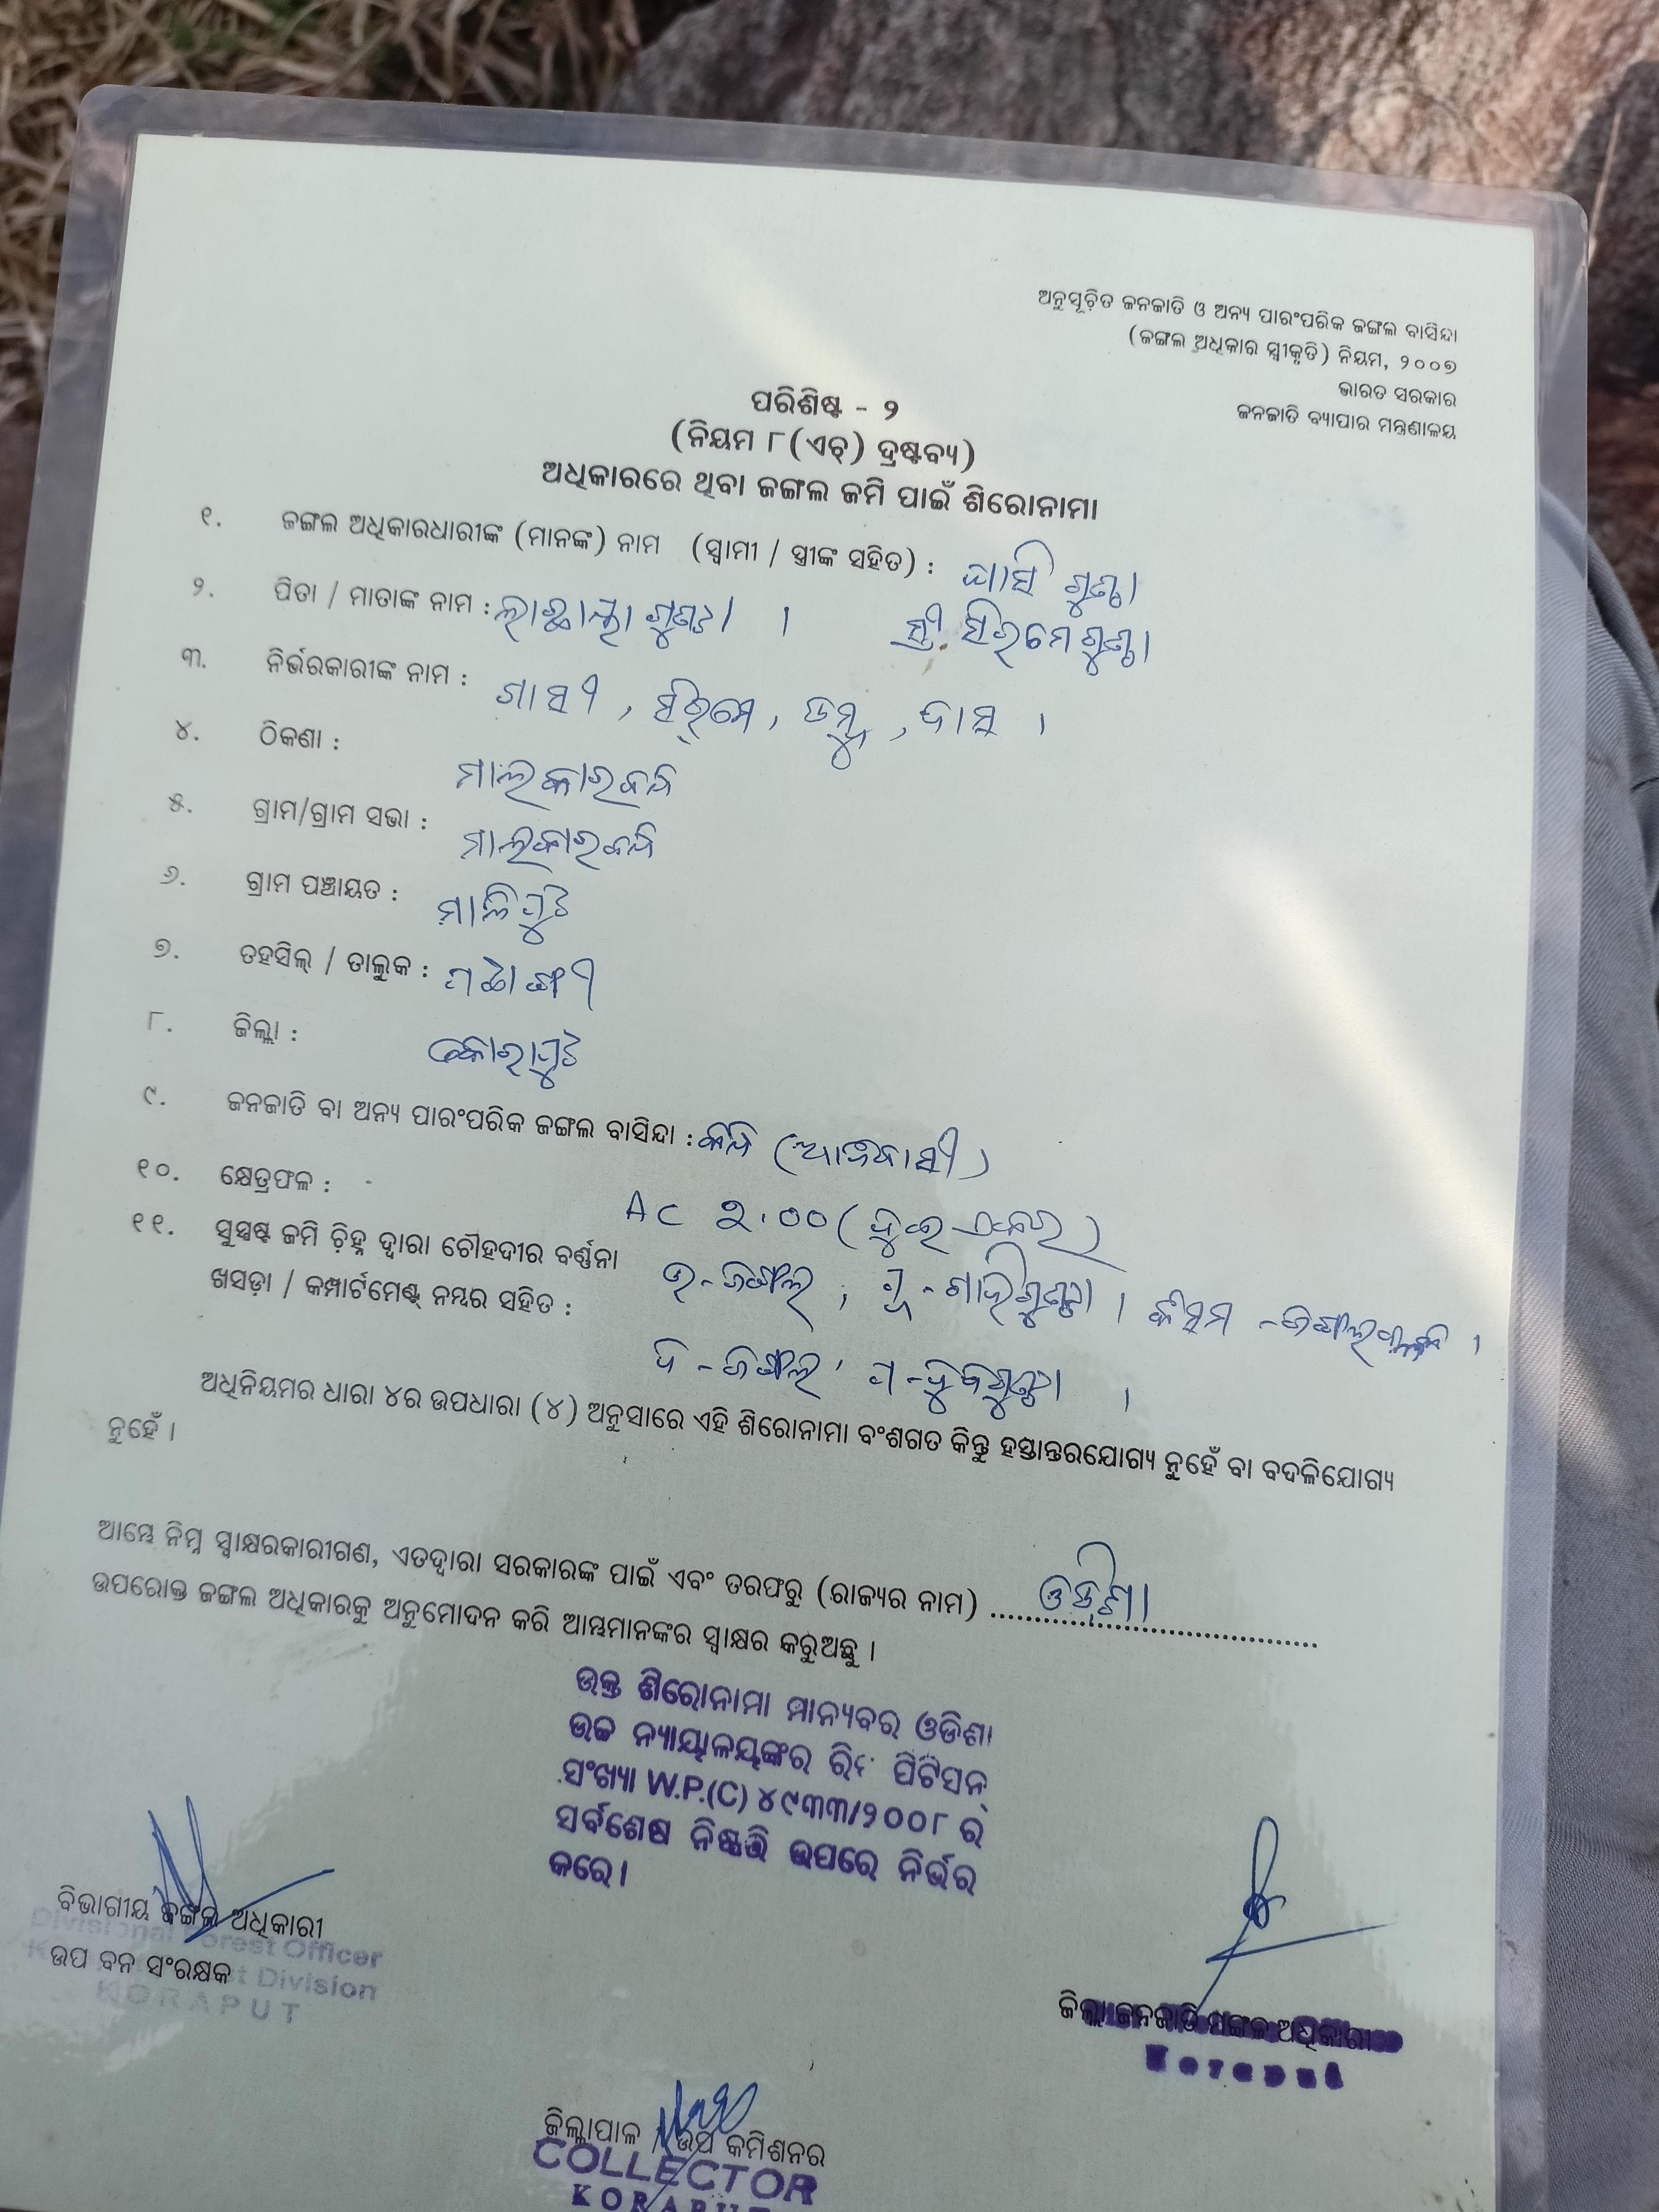 ଅନୁସୂଚିତ ଜନଜାତି ଓ ଅନ୍ୟ ପାରଂପରିକ ଜଙ୍ଗଲ ବାସିନ୍ଦା
(ଜଙ୍ଗଲ ଅଧିକାର ସ୍ୱୀକୃତି) ନିୟମ, ୨୦୦୭
ଭାରତ ସରକାର
ଜନଜାତି ବ୍ୟାପାର ମନ୍ତ୍ରଣାଳୟ
ପରିଶିଷ୍ଟ - ୨
(ନିୟମ ୮(ଏଚ୍) ଦ୍ରଷ୍ଟବ୍ୟ)
ଅଧିକାରରେ ଥିବା ଜଙ୍ଗଲ ଜମି ପାଇଁ ଶିରୋନାମା
୧. ଜଙ୍ଗଲ ଅଧିକାରଧାରୀଙ୍କ (ମାନଙ୍କ) ନାମ (ସ୍ୱାମୀ / ସ୍ତ୍ରୀଙ୍କ ସହିତ) :
୨. ପିତା / ମାତାଙ୍କ ନାମ :
୩. ନିର୍ଭରକାରୀଙ୍କ ନାମ :
୪. ଠିକଣା : ମାଲକାରବନ୍ଦି
୫. ଗ୍ରାମ/ଗ୍ରାମ ସଭା : ମାଲକାରବନ୍ଦି
୬. ଗ୍ରାମ ପଞ୍ଚାୟତ : ମାଳିପୁଟ
୭. ତହସିଲ୍ / ତାଲୁକ : ପଟାଙ୍ଗୀ
୮. ଜିଲ୍ଲା : କୋରାପୁଟ
୯. ଜନଜାତି ବା ଅନ୍ୟ ପାରଂପରିକ ଜଙ୍ଗଲ ବାସିନ୍ଦା : (ଆଦିବାସୀ)
୧୦. କ୍ଷେତ୍ରଫଳ : AC ୨.୦୦ (ଦୁଇ ଏକର)
୧୧. ସୁସ୍ପଷ୍ଟ ଜମି ଚିହ୍ନ ଦ୍ୱାରା ଚୌହଦୀର ବର୍ଣ୍ଣନା
ଖସଡ଼ା / କମ୍ପାର୍ଟମେଣ୍ଟ୍ ନମ୍ବର ସହିତ :
ଉ-ଜଙ୍ଗଲ, ପୂ- । କିସମ -
ଦ-ଜଙ୍ଗଲ, ପ- ।
ଅଧିନିୟମର ଧାରା ୪ର ଉପଧାରା (୪) ଅନୁସାରେ ଏହି ଶିରୋନାମା ବଂଶଗତ କିନ୍ତୁ ହସ୍ତାନ୍ତରଯୋଗ୍ୟ ନୁହେଁ ବା ବଦଳିଯୋଗ୍ୟ
ନୁହେଁ ।
ଆମ୍ଭେ ନିମ୍ନ ସ୍ୱାକ୍ଷରକାରୀଗଣ, ଏତଦ୍ୱାରା ସରକାରଙ୍କ ପାଇଁ ଏବଂ ତରଫରୁ (ରାଜ୍ୟର ନାମ) ଓଡ଼ିଶା
ଉପରୋକ୍ତ ଜଙ୍ଗଲ ଅଧିକାରକୁ ଅନୁମୋଦନ କରି ଆମ୍ଭମାନଙ୍କର ସ୍ୱାକ୍ଷର କରୁଅଛୁ ।
ଉକ୍ତ ଶିରୋନାମା ମାନ୍ୟବର ଓଡିଶା
ଉଚ୍ଚ ନ୍ୟାୟାଳୟଙ୍କର ରିଟ ପିଟିସନ୍
ସଂଖ୍ୟା W.P.(C) ୪୯୩୩/୨୦୦୮ ର
ସର୍ବଶେଷ ନିଷ୍ପତ୍ତି ଉପରେ ନିର୍ଭର
କରେ ।
ବିଭାଗୀୟ ଜଙ୍ଗଲ ଅଧିକାରୀ
Divisional Forest Officer
ଉପ ବନ ସଂରକ୍ଷକ
Division
KORAPUT
ଜିଲ୍ଲା ଜନଜାତି ମଙ୍ଗଳ ଅଧିକାରୀ
Koraput
ଜିଲ୍ଲାପାଳ / ଉପ କମିଶନର
COLLECTOR
KORAPUT